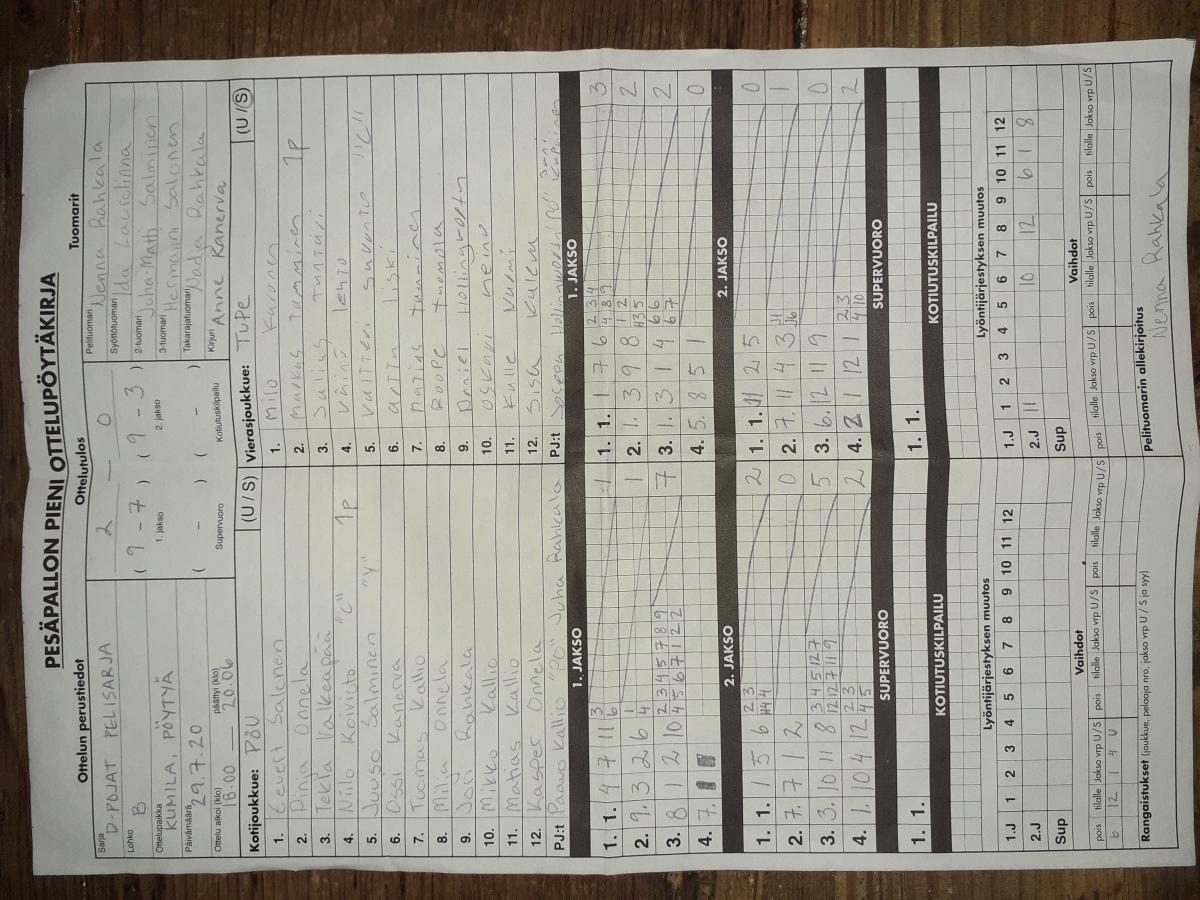 PESÄPALLON PIENI OTTELUPÖYTÄKIRJA
Ottelun perustiedot
Sarja D-POJAT PELISARJA
Lohko B
Ottelupaikka KUMILA, PÖYTYÄ
Päivämäärä 29.7.20
Ottelu alkoi (klo) 18.00 päättyi (klo) 20.06
Ottelutulos
2 — 0
( 9 - 7 ) ( 9 - 3 )
1. jakso 2. jakso
( - ) ( - )
Supervuoro Kotiutuskilpailu
Tuomarit
Pelituomari Nenna Rahkala
Syöttötuomari Ida Lautolinna
2-tuomari Juha-Matti Salminen
3-tuomari Hestmanni Salonen
Takarajatuomari Nada Rahkala
Kirjuri Anne Kanerva
Kotijoukkue: PöU (U / S)
1. Eevert Salonen
2. Pinia Onnela
3. Tekla Valkeapää
4. Niilo Koivisto "C" 1P
5. Juuso Salminen "V"
6. Ossi Kanerva
7. Tuomas Kallio
8. Milja Onnela
9. Joni Rahkala
10. Mikko Kallio
11. Matias Kallio
12. Kasper Onnela
PJ:t Paavo Kallio "PJ" Juha Rahkala
Vierasjoukkue: TuPe (U / S)
1. Milo Karonen
2. Markus Tamminen 1P
3. Julius Tunturi
4. Väinö Lehto
5. Valtteri Savanto "C"
6. Antti Liski
7. Matias Tamminen
8. Roope Tuomola
9. Daniel Hollingworth
10. Oskari Heino
11. Kalle Nurmi
12. Sisa Kulela
PJ:t Joseph Hollingworth "PJ" Jani
1. JAKSO
1. 1. 4 7 11 3 6 1
2. 9. 3 2 6 1 4 1
3. 8 1 2 10 2 3 4 5 7 8 9 4 5 6 7 1 2 2 7
4. 7.
2. JAKSO
1. 1. 1 5 6 2 3 4 4 2
2. 7. 7 1 2 0
3. 3. 10 11 8 3 4 5 12 7 12 12 7 11 9 5
4. 1. 10 4 12 2 3 4 5 2
SUPERVUORO
1. 1.
KOTIUTUSKILPAILU
Lyöntijärjestyksen muutos
1.J 1 2 3 4 5 6 7 8 9 10 11 12
2.J
Sup
Vaihdot
pois tilalle Jakso vrp U / S pois tilalle Jakso vrp U / S pois tilalle Jakso vrp U / S
6 12 1 4 U
Rangaistukset (joukkue, pelaaja nro, jakso vrp U / S ja syy)
1. JAKSO
1. 1. 1 7 6 2 3 4 4 8 9 3
2. 1. 3 9 8 1 2 3 5 2
3. 1. 3 1 4 6 6 6 7 2
4. 5. 8 5 1 0
2. JAKSO
1. 1. 11 2 5 0
2. 7. 11 4 3 1
3. 6. 12 11 9 0
4. 2 1 12 1 2 3 4 10 2
SUPERVUORO
1. 1.
KOTIUTUSKILPAILU
Lyöntijärjestyksen muutos
1.J 1 2 3 4 5 6 7 8 9 10 11 12
2.J 11 10 12 6 1 8
Sup
Vaihdot
pois tilalle Jakso vrp U / S pois tilalle Jakso vrp U / S pois tilalle Jakso vrp U / S
Pelituomarin allekirjoitus
Nenna Rahkala